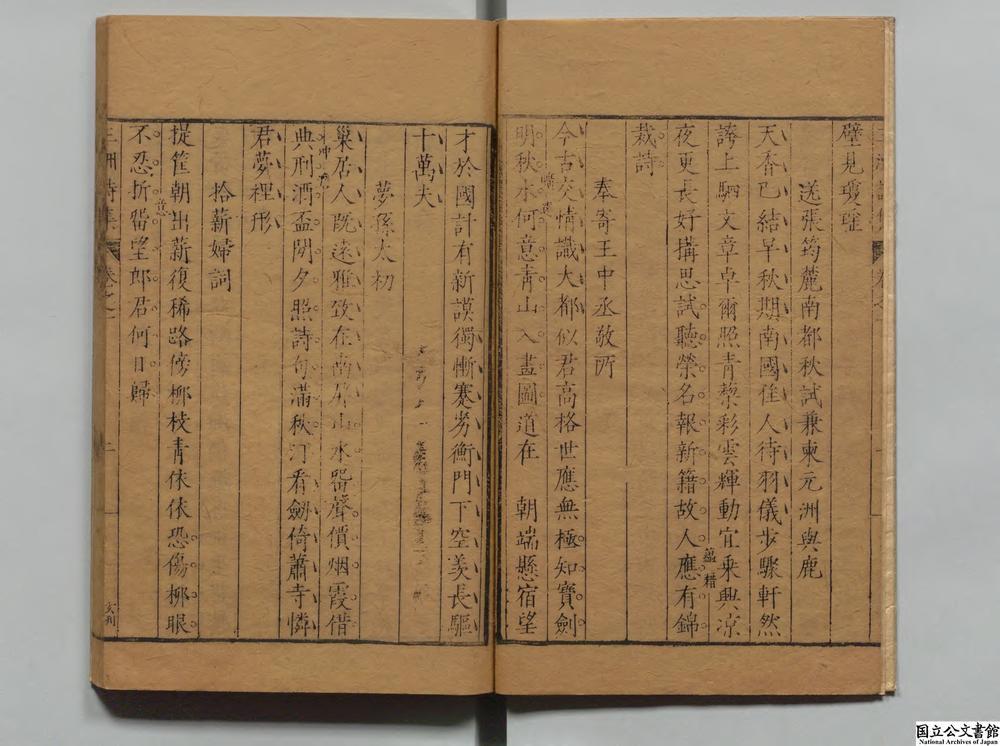 璧見瓊雅
送張筠麓南都秋試兼柬元洲與鹿
天香已結早秋期南國佳人待羽儀步驟軒然
誇上駟文章卓爾照青藜彩雲輝動宜乘興涼
蘊藉
夜更長好搆思試聽榮名報新籍故人應有錦
裁詩
奉寄王中丞敬所
今古交情識大都似君高格世應無極知寶劍
明秋水何意青山入畫圖道在 朝端懸宿望
才於國計有新謨獨慚蹇劣衡門下空羡長驅
十萬夫
夢孫太初
巢居人既遠雅致在 山水留聲價烟霞借
典刑酒盃閒夕照詩句滿秋汀看劒倚蕭寺憐
君夢裡形
拾薪婦詞
提筐朝出薪復稀路傍柳枝青依依恐傷柳眼
不忍折留望郎君何日歸
意
三洲詩集 卷之
国立公文書館
National Archives of Japan